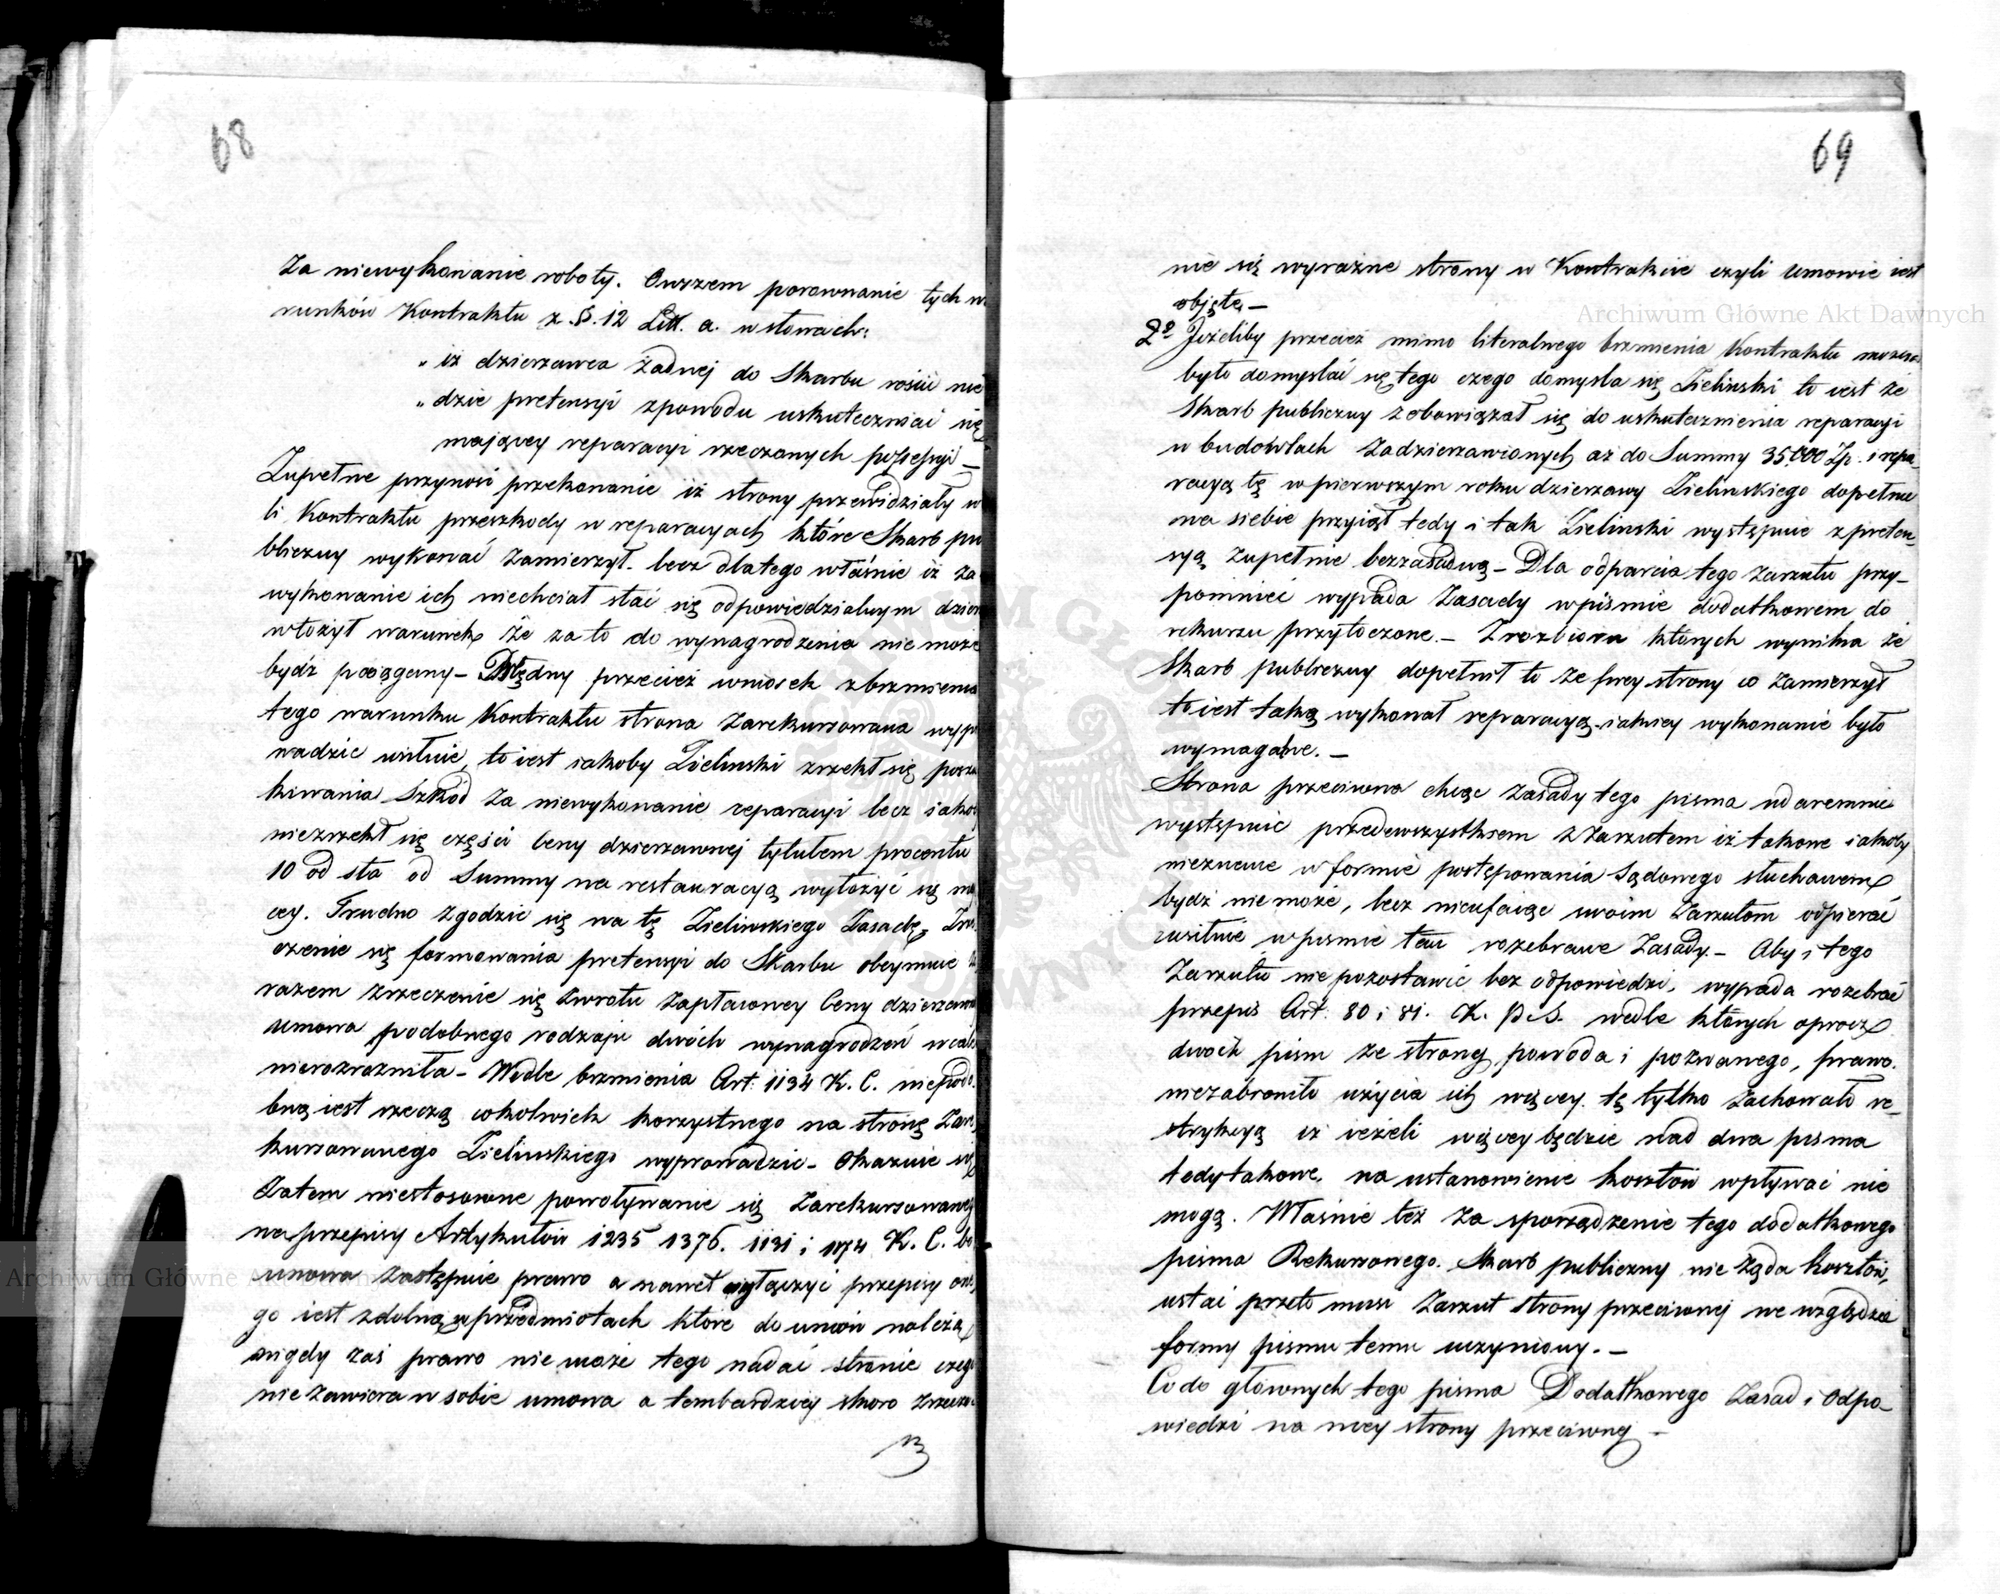 68
Za niewykonanie roboty. Owszem porownanie tych w
runków Kontraktu z §. 12 Litt. a. w słowach:
„ iż dzierzawca żadnej do Skarbu rościć nie
„ dzie pretensyi z powodu uskuteczniać się
mającey reparacyi rzeczonych possessyi —
Zupełne przynosi przekonanie iż strony przewidziały w
li Kontraktu przeszkody w reparacyach które Skarb pu
bliczny wykonać zamierzył. lecz dlatego właśnie iż za
wykonanie ich niechciał stać się odpowiedzialnym
włożył warunek że za to do wynagrodzenia nie może
bydź pociągany — Błędny przecież wniosek z brzmienia
tego warunku Kontraktu strona Zarekursowana wypro
wadzić usiłuie, to iest iakoby Zielinski zrzekł się poszu
kiwania Szkód za niewykonanie reparacyi lecz iakoby
niezrzekł się części Ceny dzierzawnej tytułem procentu
10 od sta od Summy na restauracyą wyłożyć się ma
cey. Trudno zgodzić się na tę Zielinskiego Zasadę, Zrze
czenie się formowania pretensyi do Skarbu obeymuie
razem zrzeczenie się zwrotu zapłaconey Ceny dzierzawn
umowa podobnego rodzaju dwóch wynagrodzeń wcale
nierozrożniła — Wedle brzmienia Art: 1134 K. C. niepodo
bną iest rzeczą cokolwiek korzystnego na stronę Zare
kursowanego Zielinskiego wyprowadzić — Okazuie się
Zatem niestosowne powoływanie się Zarekursowaney
na przepisy Artykułów 1235 1376. 1131 i 1174 K. C. bo
umowa zastępuie prawo a nawet wyłączyć przepisy one
go iest zdolną w przedmiotach które do umów należą
nigdy zaś prawo nie może tego nadać stronie czego
nie zawiera w sobie umowa a tembardziey skoro zrzecze
69
nie się wyraźne strony w Kontrakcie czyli umowie iest
objęte —
2º Jeżeliby przecież mimo literalnego brzmienia Kontraktu można
było domyślać się tego czego domyśla się Zielinski to iest że
Skarb publiczny zobowiązał się do uskutecznienia reparacyi
w budowlach Zadzierzawionych aż do Summy 35000 Zp. i repa-
racyą tę w pierwszym roku dzierzawy Zielinskiego dopełnie
na siebie przyiął tedy i tak Zielinski występuie z preten-
syą zupełnie bezzasadną — Dla odparcia tego zarzutu przy-
pomnieć wypada Zasady w piśmie dodatkowem do
rekursu przytoczone. — Z rozbioru których wynika że
Skarb publiczny dopełnił to ze swey strony co zamierzył
to iest taką wykonał reparacyą iakiey wykonanie było
wymagalne. —
Strona przeciwna chcąc zasady tego pisma udaremnić
występuie przedewszystkiem z zarzutem iż takowe iakoby
nieznane w formie postępowania Sądowego słuchanem
bydź nie może, lecz nieufaiąc swoim Zarzutom odpierać
usiłuie w pismie tem rozebrane Zasady. — Aby i tego
Zarzutu nie pozostawić bez odpowiedzi, wypada rozebrać
przepis Art: 80 i 81. K. P. S. wedle których oprocz
dwóch pism ze strony powoda i pozwanego, prawo
niezabroniło użycia ich więcey. tę tylko zachowało re-
strykcyą iż ieżeli więcey będzie nad dwa pisma
tedy takowe, na ustanowienie kosztów wpływać nie
mogą. Właśnie też za sporządzenie tego dodatkowego
pisma Rekursowego. Skarb publiczny nie żąda kosztów,
ustać przeto musi zarzut strony przeciwnej we względzie
formy pismu temu uczyniony. —
Co do głównych tego pisma Dodatkowego Zasad i odpo-
wiedzi na nie strony przeciwney —